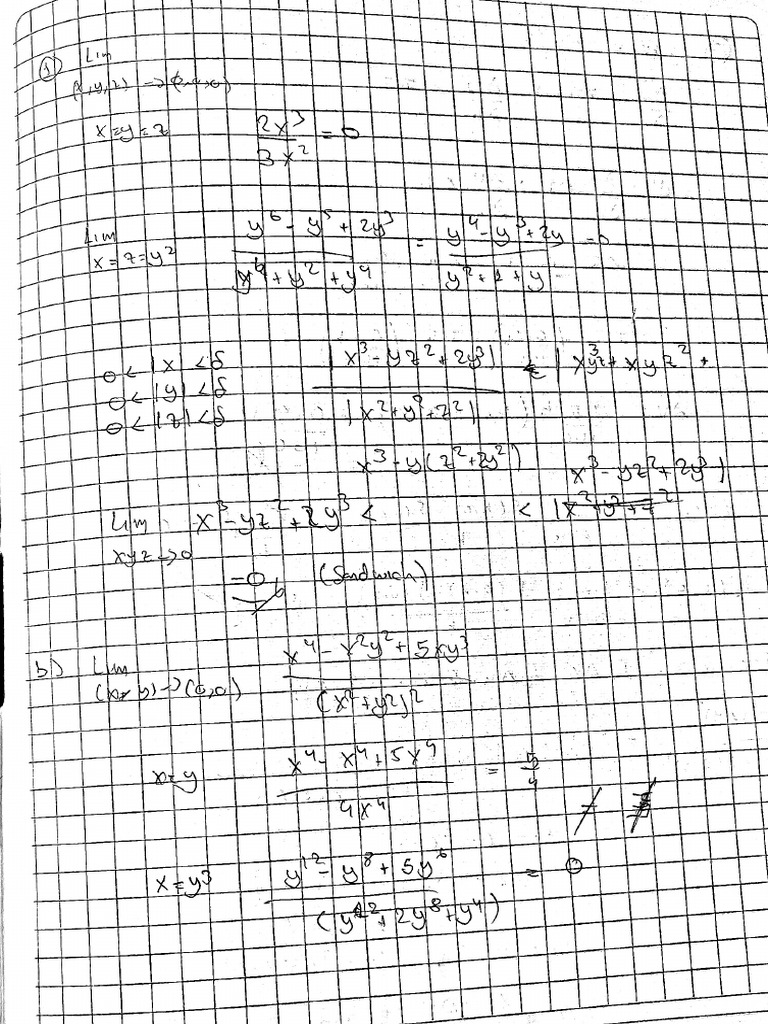 ① Lim
(x,y,z) → (0,0,0)
x=y=z   2x³ / 3x² = 0
Lim x=z=y²   (y⁶ - y⁵ + 2y³) / (y⁴ + y² + y⁴) = (y⁴ - y³ + 2y) / (y² + 1 + y) = 0
0 < |x| < δ   |x³ - yz² + 2y³| / |x² + y² + z²|
0 < |y| < δ
0 < |z| < δ
x³ - y(z² + 2y²)   x³ - yz² + 2y³|
Lim xyz → 0   x³ - yz² + 2y³ <   < |x² + y² + z²
= 0 (Sandwich)
b) Lim (x,y) → (0,0)   (x⁴ - x²y² + 5xy³) / (x² + y²)²
x=y   (x⁴ - x⁴ + 5x⁴) / 4x⁴ = 5/4
x=y³   (y¹² - y⁸ + 5y⁶) / (y¹² + 2y⁸ + y⁴) = 0